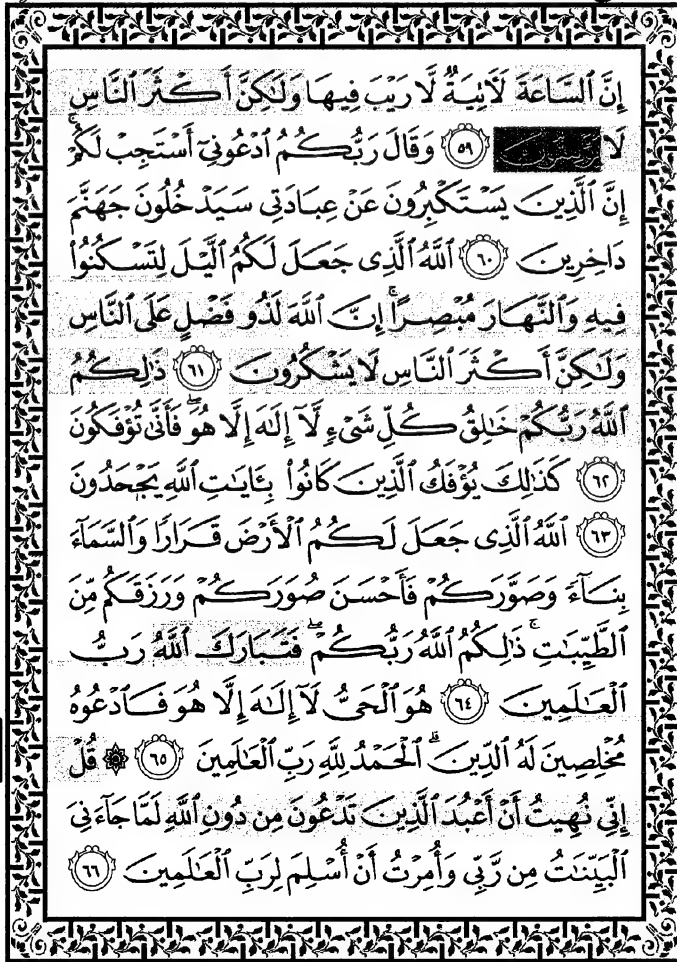 إِنَّ ٱلسَّاعَةَ لَآتِيَةٌ لَّا رَيْبَ فِيهَا وَلَٰكِنَّ أَكْثَرَ ٱلنَّاسِ
لَا ﴿٥٩﴾ وَقَالَ رَبُّكُمُ ٱدْعُونِىٓ أَسْتَجِبْ لَكُمْ ۚ
إِنَّ ٱلَّذِينَ يَسْتَكْبِرُونَ عَنْ عِبَادَتِى سَيَدْخُلُونَ جَهَنَّمَ
دَاخِرِينَ ﴿٦٠﴾ ٱللَّهُ ٱلَّذِى جَعَلَ لَكُمُ ٱلَّيْلَ لِتَسْكُنُوا۟
فِيهِ وَٱلنَّهَارَ مُبْصِرًا ۚ إِنَّ ٱللَّهَ لَذُو فَضْلٍ عَلَى ٱلنَّاسِ
وَلَٰكِنَّ أَكْثَرَ ٱلنَّاسِ لَا يَشْكُرُونَ ﴿٦١﴾ ذَٰلِكُمُ
ٱللَّهُ رَبُّكُمْ خَٰلِقُ كُلِّ شَىْءٍ لَّآ إِلَٰهَ إِلَّا هُوَ ۖ فَأَنَّىٰ تُؤْفَكُونَ
﴿٦٢﴾ كَذَٰلِكَ يُؤْفَكُ ٱلَّذِينَ كَانُوا۟ بِـَٔايَٰتِ ٱللَّهِ يَجْحَدُونَ
﴿٦٣﴾ ٱللَّهُ ٱلَّذِى جَعَلَ لَكُمُ ٱلْأَرْضَ قَرَارًا وَٱلسَّمَآءَ
بِنَآءً وَصَوَّرَكُمْ فَأَحْسَنَ صُوَرَكُمْ وَرَزَقَكُم مِّنَ
ٱلطَّيِّبَٰتِ ۚ ذَٰلِكُمُ ٱللَّهُ رَبُّكُمْ ۖ فَتَبَارَكَ ٱللَّهُ رَبُّ
ٱلْعَٰلَمِينَ ﴿٦٤﴾ هُوَ ٱلْحَىُّ لَآ إِلَٰهَ إِلَّا هُوَ فَٱدْعُوهُ
مُخْلِصِينَ لَهُ ٱلدِّينَ ۗ ٱلْحَمْدُ لِلَّهِ رَبِّ ٱلْعَٰلَمِينَ ﴿٦٥﴾ ۞ قُلْ
إِنِّى نُهِيتُ أَنْ أَعْبُدَ ٱلَّذِينَ تَدْعُونَ مِن دُونِ ٱللَّهِ لَمَّا جَآءَنِىَ
ٱلْبَيِّنَٰتُ مِن رَّبِّى وَأُمِرْتُ أَنْ أُسْلِمَ لِرَبِّ ٱلْعَٰلَمِينَ ﴿٦٦﴾